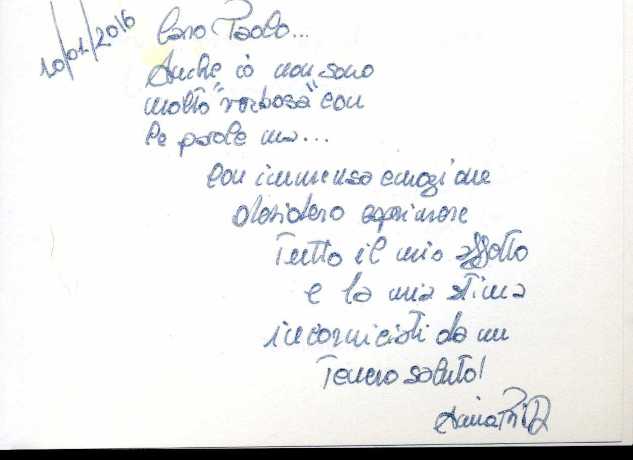 10/01/2016
Caro Paolo...
Anche io non sono
molto "verbosa" con
le parole ma...
con immensa emozione
desidero esprimere
Tutto il mio affetto
e la mia stima
incorniciati da un
Tenero saluto!